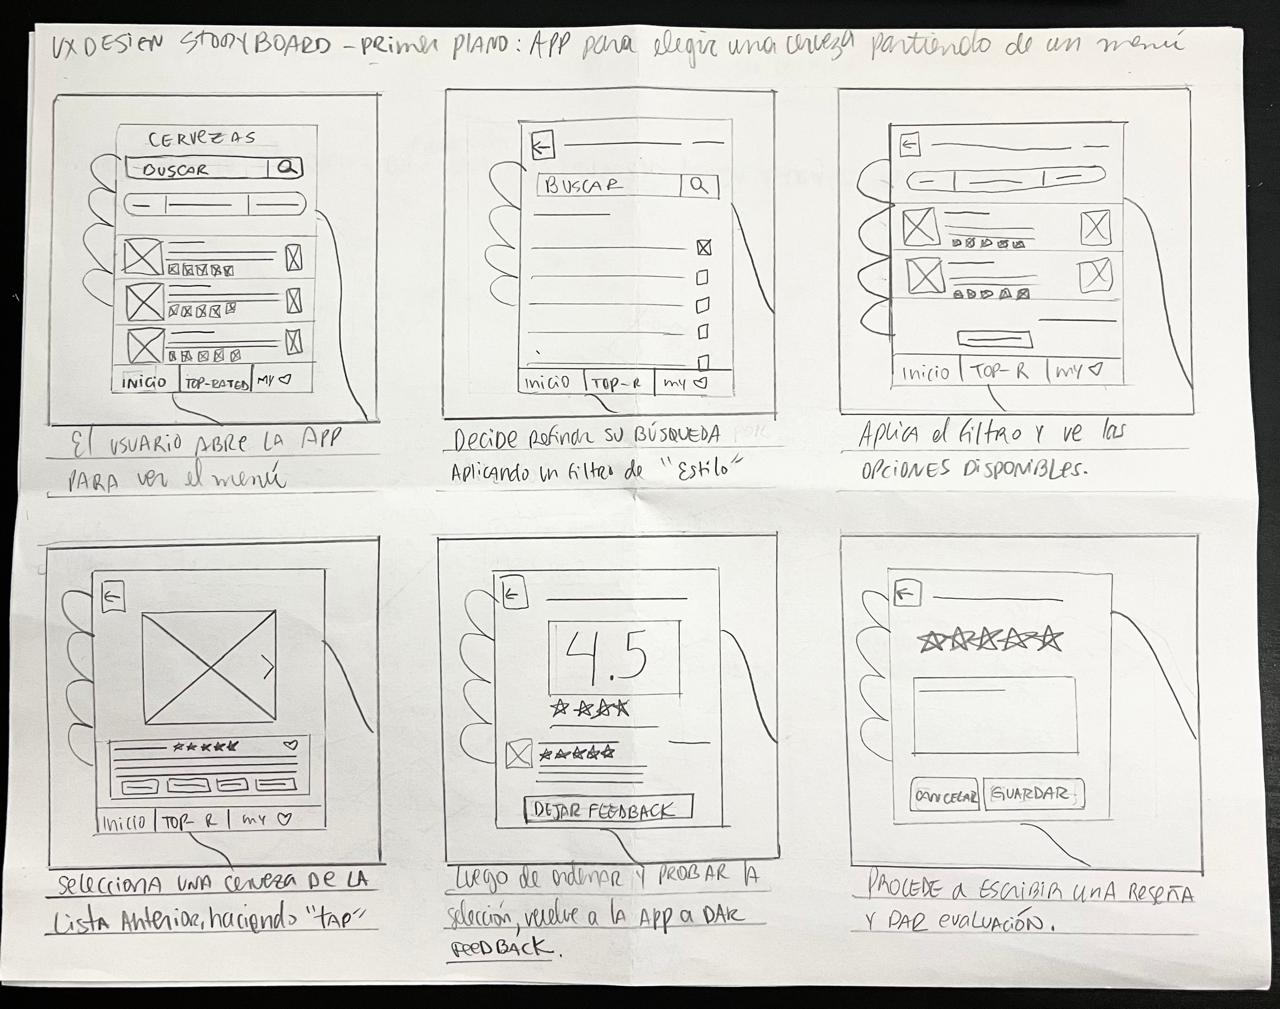 UX DESIGN STORYBOARD - PRIMER PLANO: APP para elegir una cerveza partiendo de un menú
CERVEZAS
BUSCAR
INICIO TOP-RATED MY ♡
El USUARIO ABRE LA APP
PARA ver el menú
BUSCAR
Inicio TOP-R MY ♡
DECIDE Refinar SU BÚSQUEDA
Aplicando un filtro de "Estilo"
Inicio TOP-R My ♡
Aplica el filtro y ve las
OPCIONES DISPONIBLES.
Inicio TOP-R my ♡
Selecciona UNA cerveza DE LA
Lista Anterior, haciendo "TAP"
4.5
DEJAR FEEDBACK
Luego de ordenar y PROBAR la
selección, vuelve a la App a DAR
FEEDBACK.
CANCELAR GUARDAR
PROCEDE a ESCRIBIR una Reseña
Y DAR evaluación.